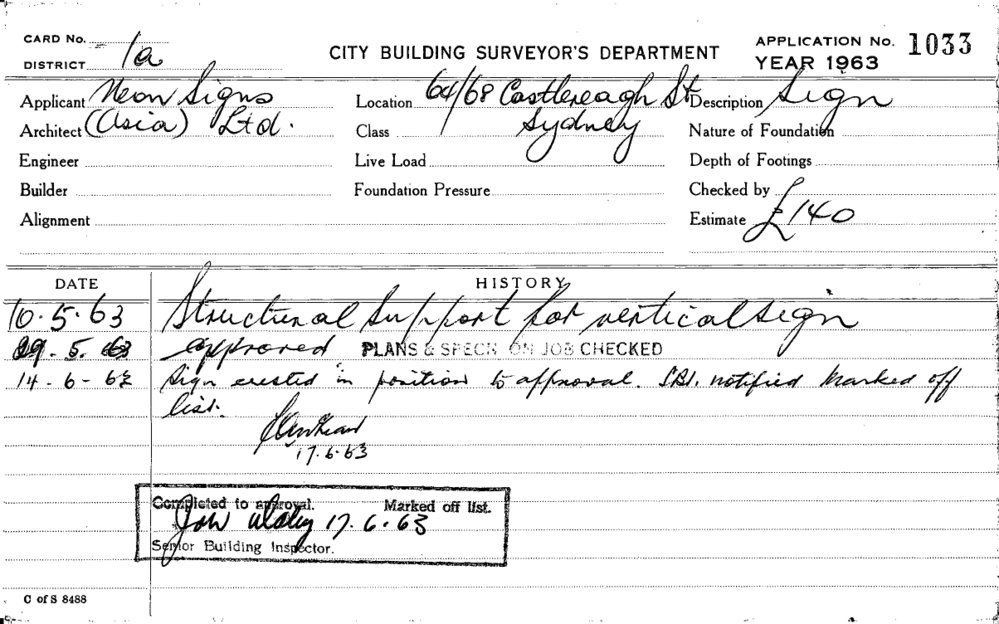 CARD No.
DISTRICT 1a
CITY BUILDING SURVEYOR'S DEPARTMENT
APPLICATION No. 1033
YEAR 1963
Applicant Neon Signs
Architect (Asia) Ltd.
Engineer
Builder
Alignment
Location 64/68 Castlereagh St
Class Sydney
Live Load
Foundation Pressure
Description Sign
Nature of Foundation
Depth of Footings
Checked by
Estimate £140
DATE HISTORY
10.5.63 Structural support for vertical sign
29.5.63 approved PLANS & SPECN ON JOB CHECKED
14-6-63 Sign erected in position to approval. notified marked off
list.
17.6.63
Completed to approval. Marked off list.
17.6.63
Senior Building Inspector.
C of S 8488